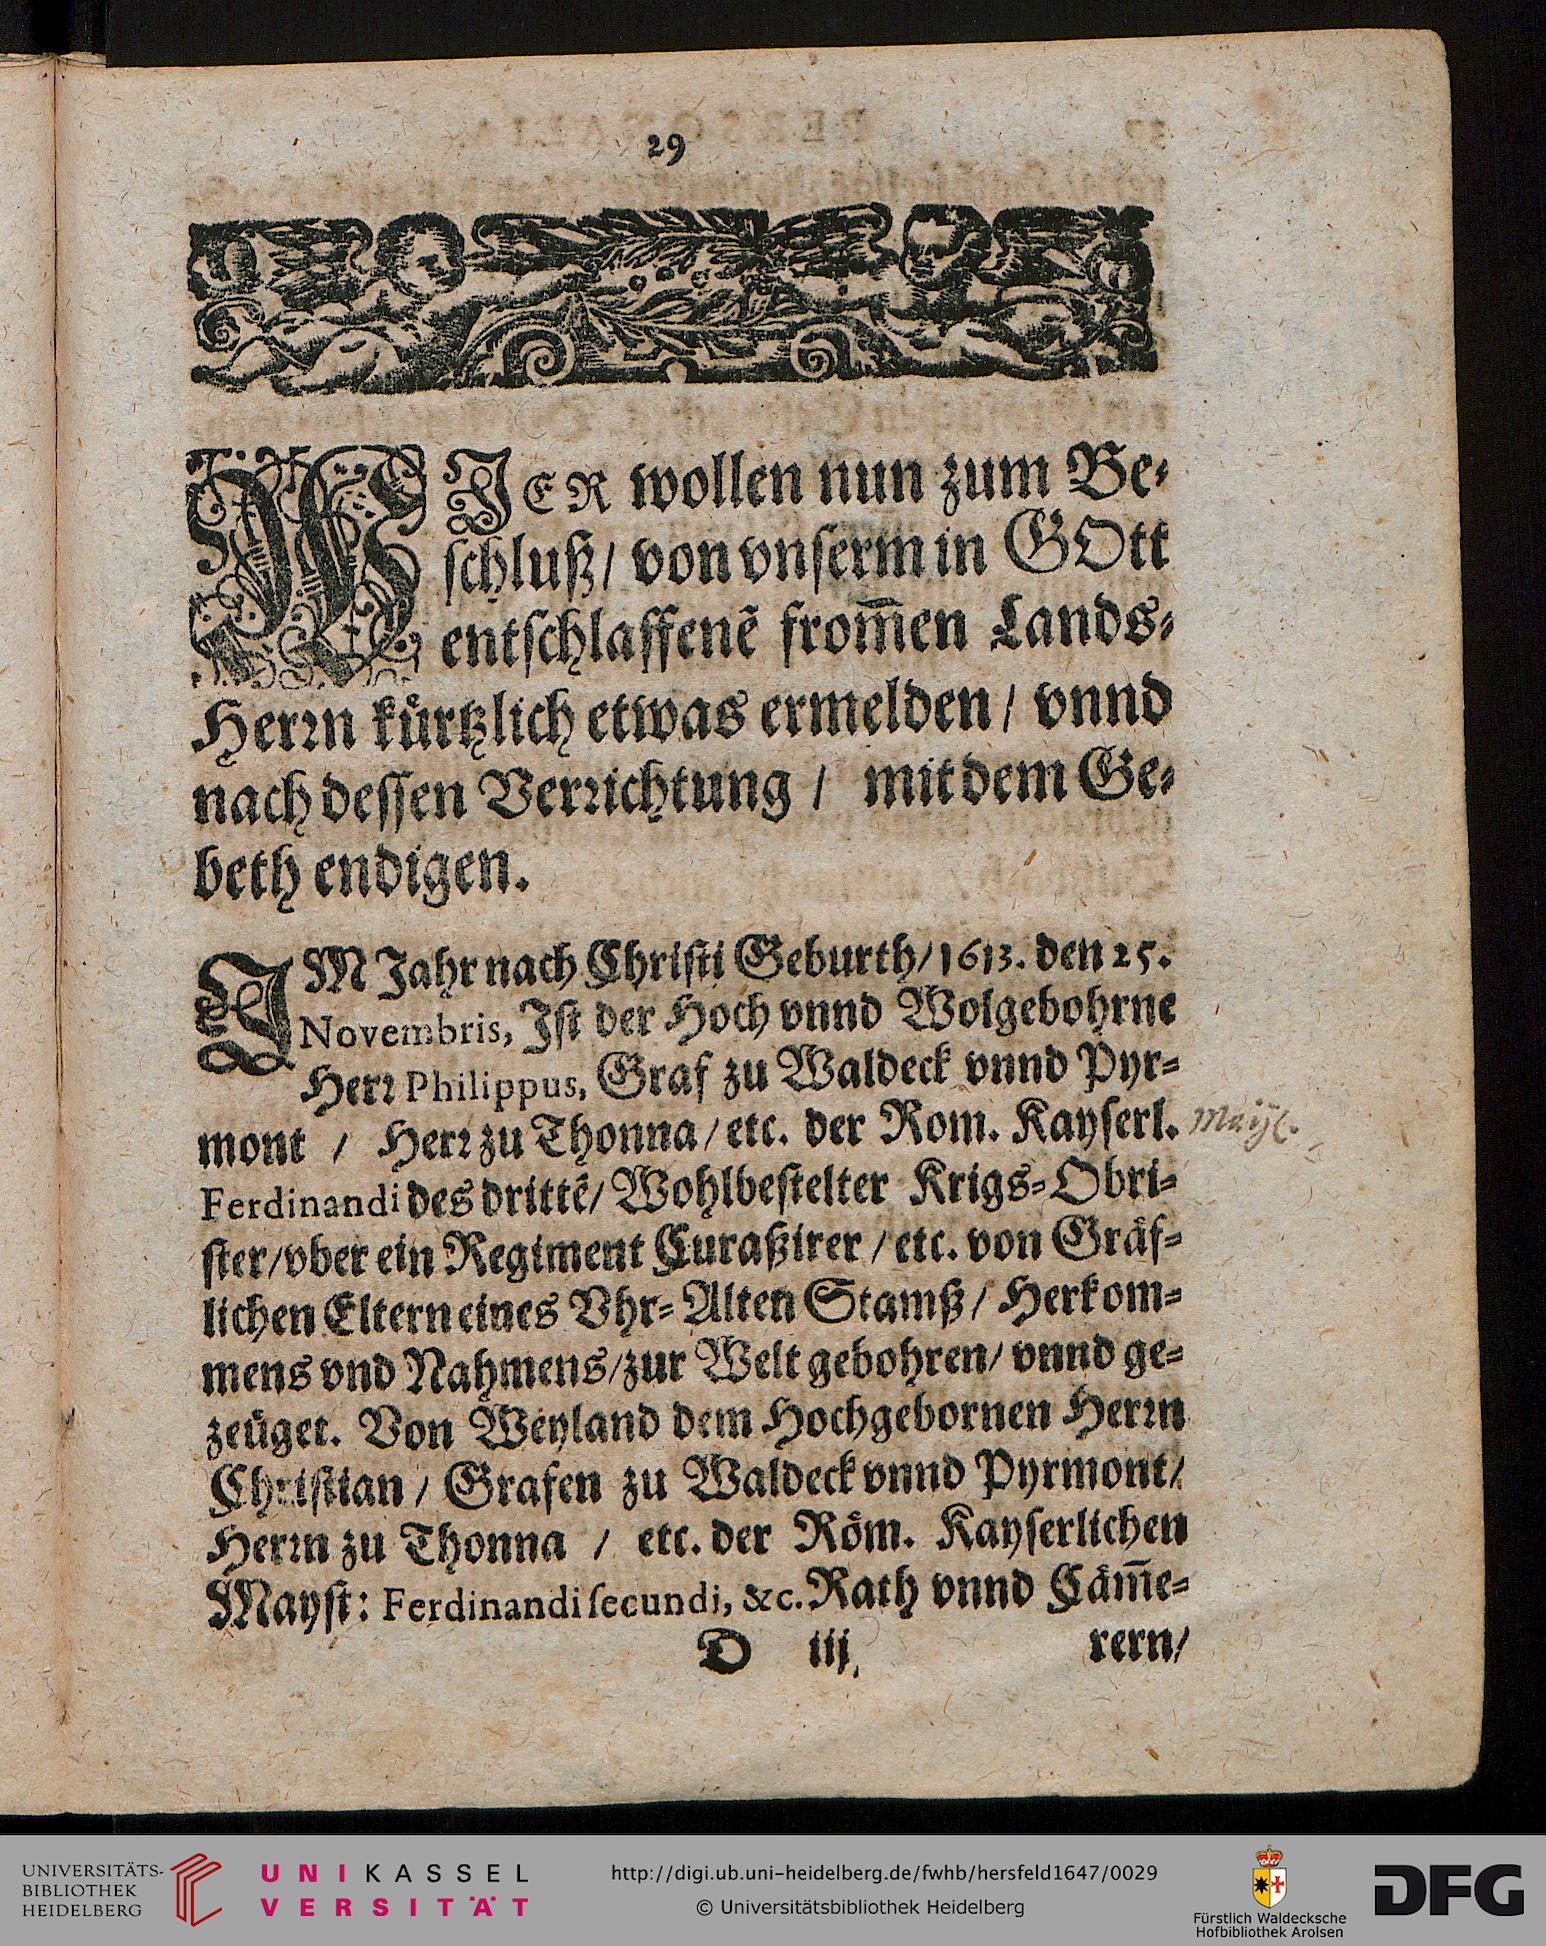 29
WJER wollen nun zum Be-
schluß/ von vnserm in GOtt
entschlaffenẽ from̃en Lands-
Herrn kürtzlich etwas ermelden/ vnnd
nach dessen Verrichtung / mit dem Ge-
beth endigen.
IM Jahr nach Christi Geburth/1613. den 25.
Novembris, Ist der Hoch vnnd Wolgebohrne
Herr Philippus, Graf zu Waldeck vnnd Pyr-
mont / Herr zu Thonna/etc. der Rom. Kayserl. Mayẗ.
Ferdinandi des drittẽ/ Wohlbestelter Krigs-Obri-
ster/vber ein Regiment Curaßirer/etc. von Gräf-
lichen Eltern eines Vhr-Alten Stamß/ Herkom-
mens vnd Nahmens/zur Welt gebohren/ vnnd ge-
zeüget. Von Weyland dem Hochgebornen Herrn
Christian/ Grafen zu Waldeck vnnd Pyrmont/
Herrn zu Thonna / etc. der Röm. Kayserlichen
Mayst: Ferdinandi secundi, &c. Rath vnnd Cäm̃e-
D iij. rern/
UNIVERSITÄTS-
BIBLIOTHEK
HEIDELBERG
UNIKASSEL
VERSITÄT
http://digi.ub.uni-heidelberg.de/fwhb/hersfeld1647/0029
© Universitätsbibliothek Heidelberg
Fürstlich Waldecksche
Hofbibliothek Arolsen
DFG